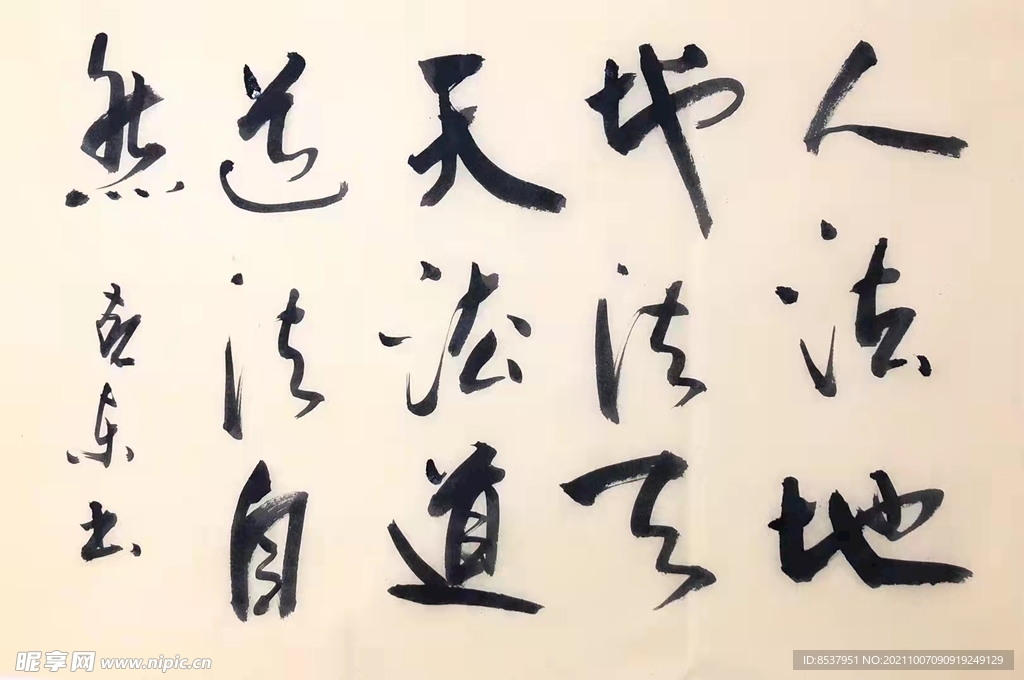 人法地
地法天
天法道
道法自
然
东书
昵享网 www.nipic.cn
ID:8537951 NO:20211007090919249129